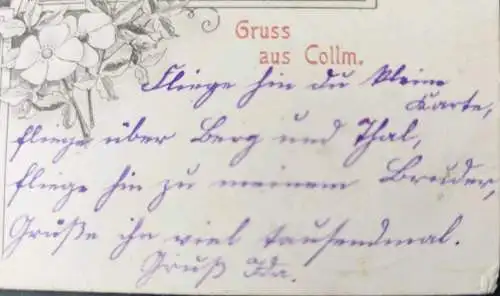 Gruss
aus Collm.
Fliege hin du kleine
Karte,
fliege über Berg und Thal,
fliege hin zu meinem Bruder,
Grüße ihn viel tausendmal.
Gruß Ida.